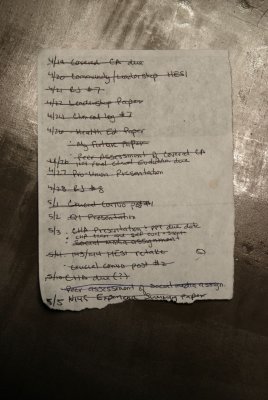 4/19 Covered CA due
4/20 Community/Leadership HESI
4/21 RJ #7
4/22 Leadership Paper
4/24 Clinical log #7
4/26 Health Ed Paper
My Future Paper
Peer Assessment of Covered CA
4/26 final clinical evaluation due
4/27 Pro-Union Presentation
4/28 RJ #8
5/1 Crucial convo
5/2 QI Presentation
5/3 CHA Presentation + ppt due date
CHA team and self
Social media assignment
5/4 143/144 HESI retake
crucial convo post #2
5/10 CHA due (?)
Peer assessment of social media assign.
5/5 NIHS Experience Summary Paper